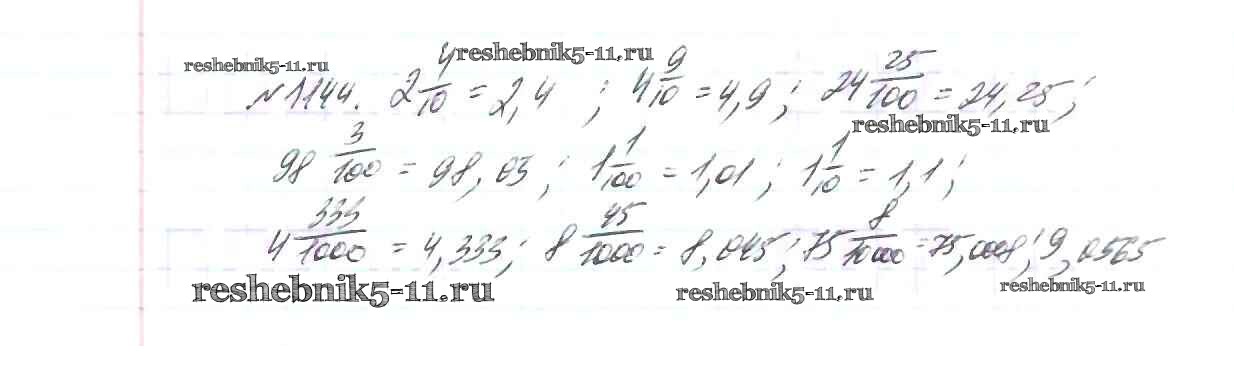 reshebnik5-11.ru reshebnik5-11.ru
№ 1144. 2 4/10 = 2,4 ; 4 9/10 = 4,9 ; 24 25/100 = 24,25 ;
reshebnik5-11.ru
98 3/100 = 98,03 ; 1 1/100 = 1,01 ; 1 1/10 = 1,1 ;
4 333/1000 = 4,333 ; 8 45/1000 = 8,045 ; 75 8/1000 = 75,008 ; 9,0565
reshebnik5-11.ru reshebnik5-11.ru reshebnik5-11.ru